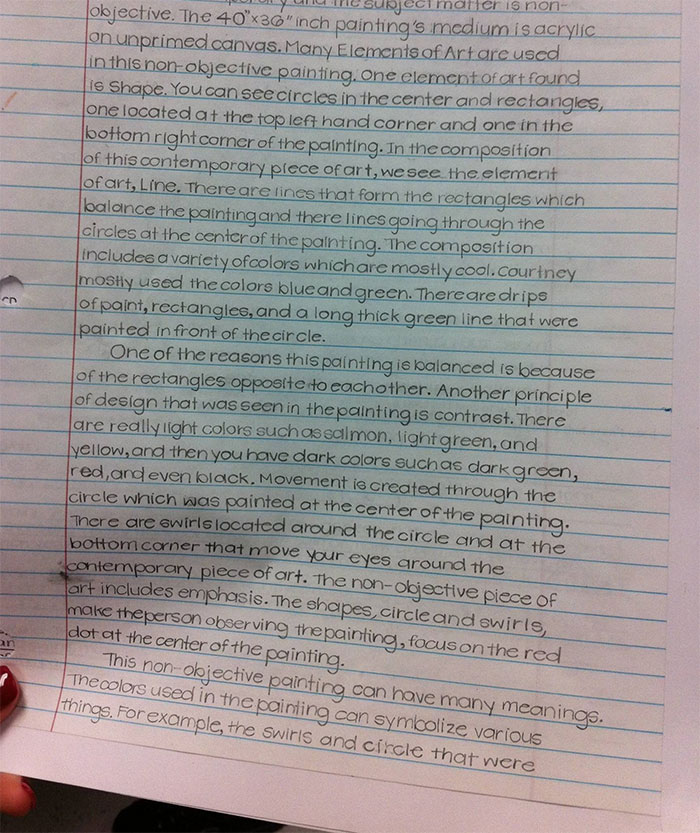 and the subject matter is non-
objective. The 40"x36" inch painting's medium is acrylic
on unprimed canvas. Many Elements of Art are used
in this non-objective painting. One element of art found
is Shape. You can see circles in the center and rectangles,
one located at the top left hand corner and one in the
bottom right corner of the painting. In the composition
of this contemporary piece of art, we see the element
of art, Line. There are lines that form the rectangles which
balance the painting and there lines going through the
circles at the center of the painting. The composition
includes a variety of colors which are mostly cool. Courtney
mostly used the colors blue and green. There are drips
of paint, rectangles, and a long thick green line that were
painted in front of the circle.
One of the reasons this painting is balanced is because
of the rectangles opposite to each other. Another principle
of design that was seen in the painting is contrast. There
are really light colors such as salmon, light green, and
yellow, and then you have dark colors such as dark green,
red, and even black. Movement is created through the
circle which was painted at the center of the painting.
There are swirls located around the circle and at the
bottom corner that move your eyes around the
contemporary piece of art. The non-objective piece of
art includes emphasis. The shapes, circle and swirls,
make the person observing the painting, focus on the red
dot at the center of the painting.
This non-objective painting can have many meanings.
The colors used in the painting can symbolize various
things. For example, the swirls and circle that were